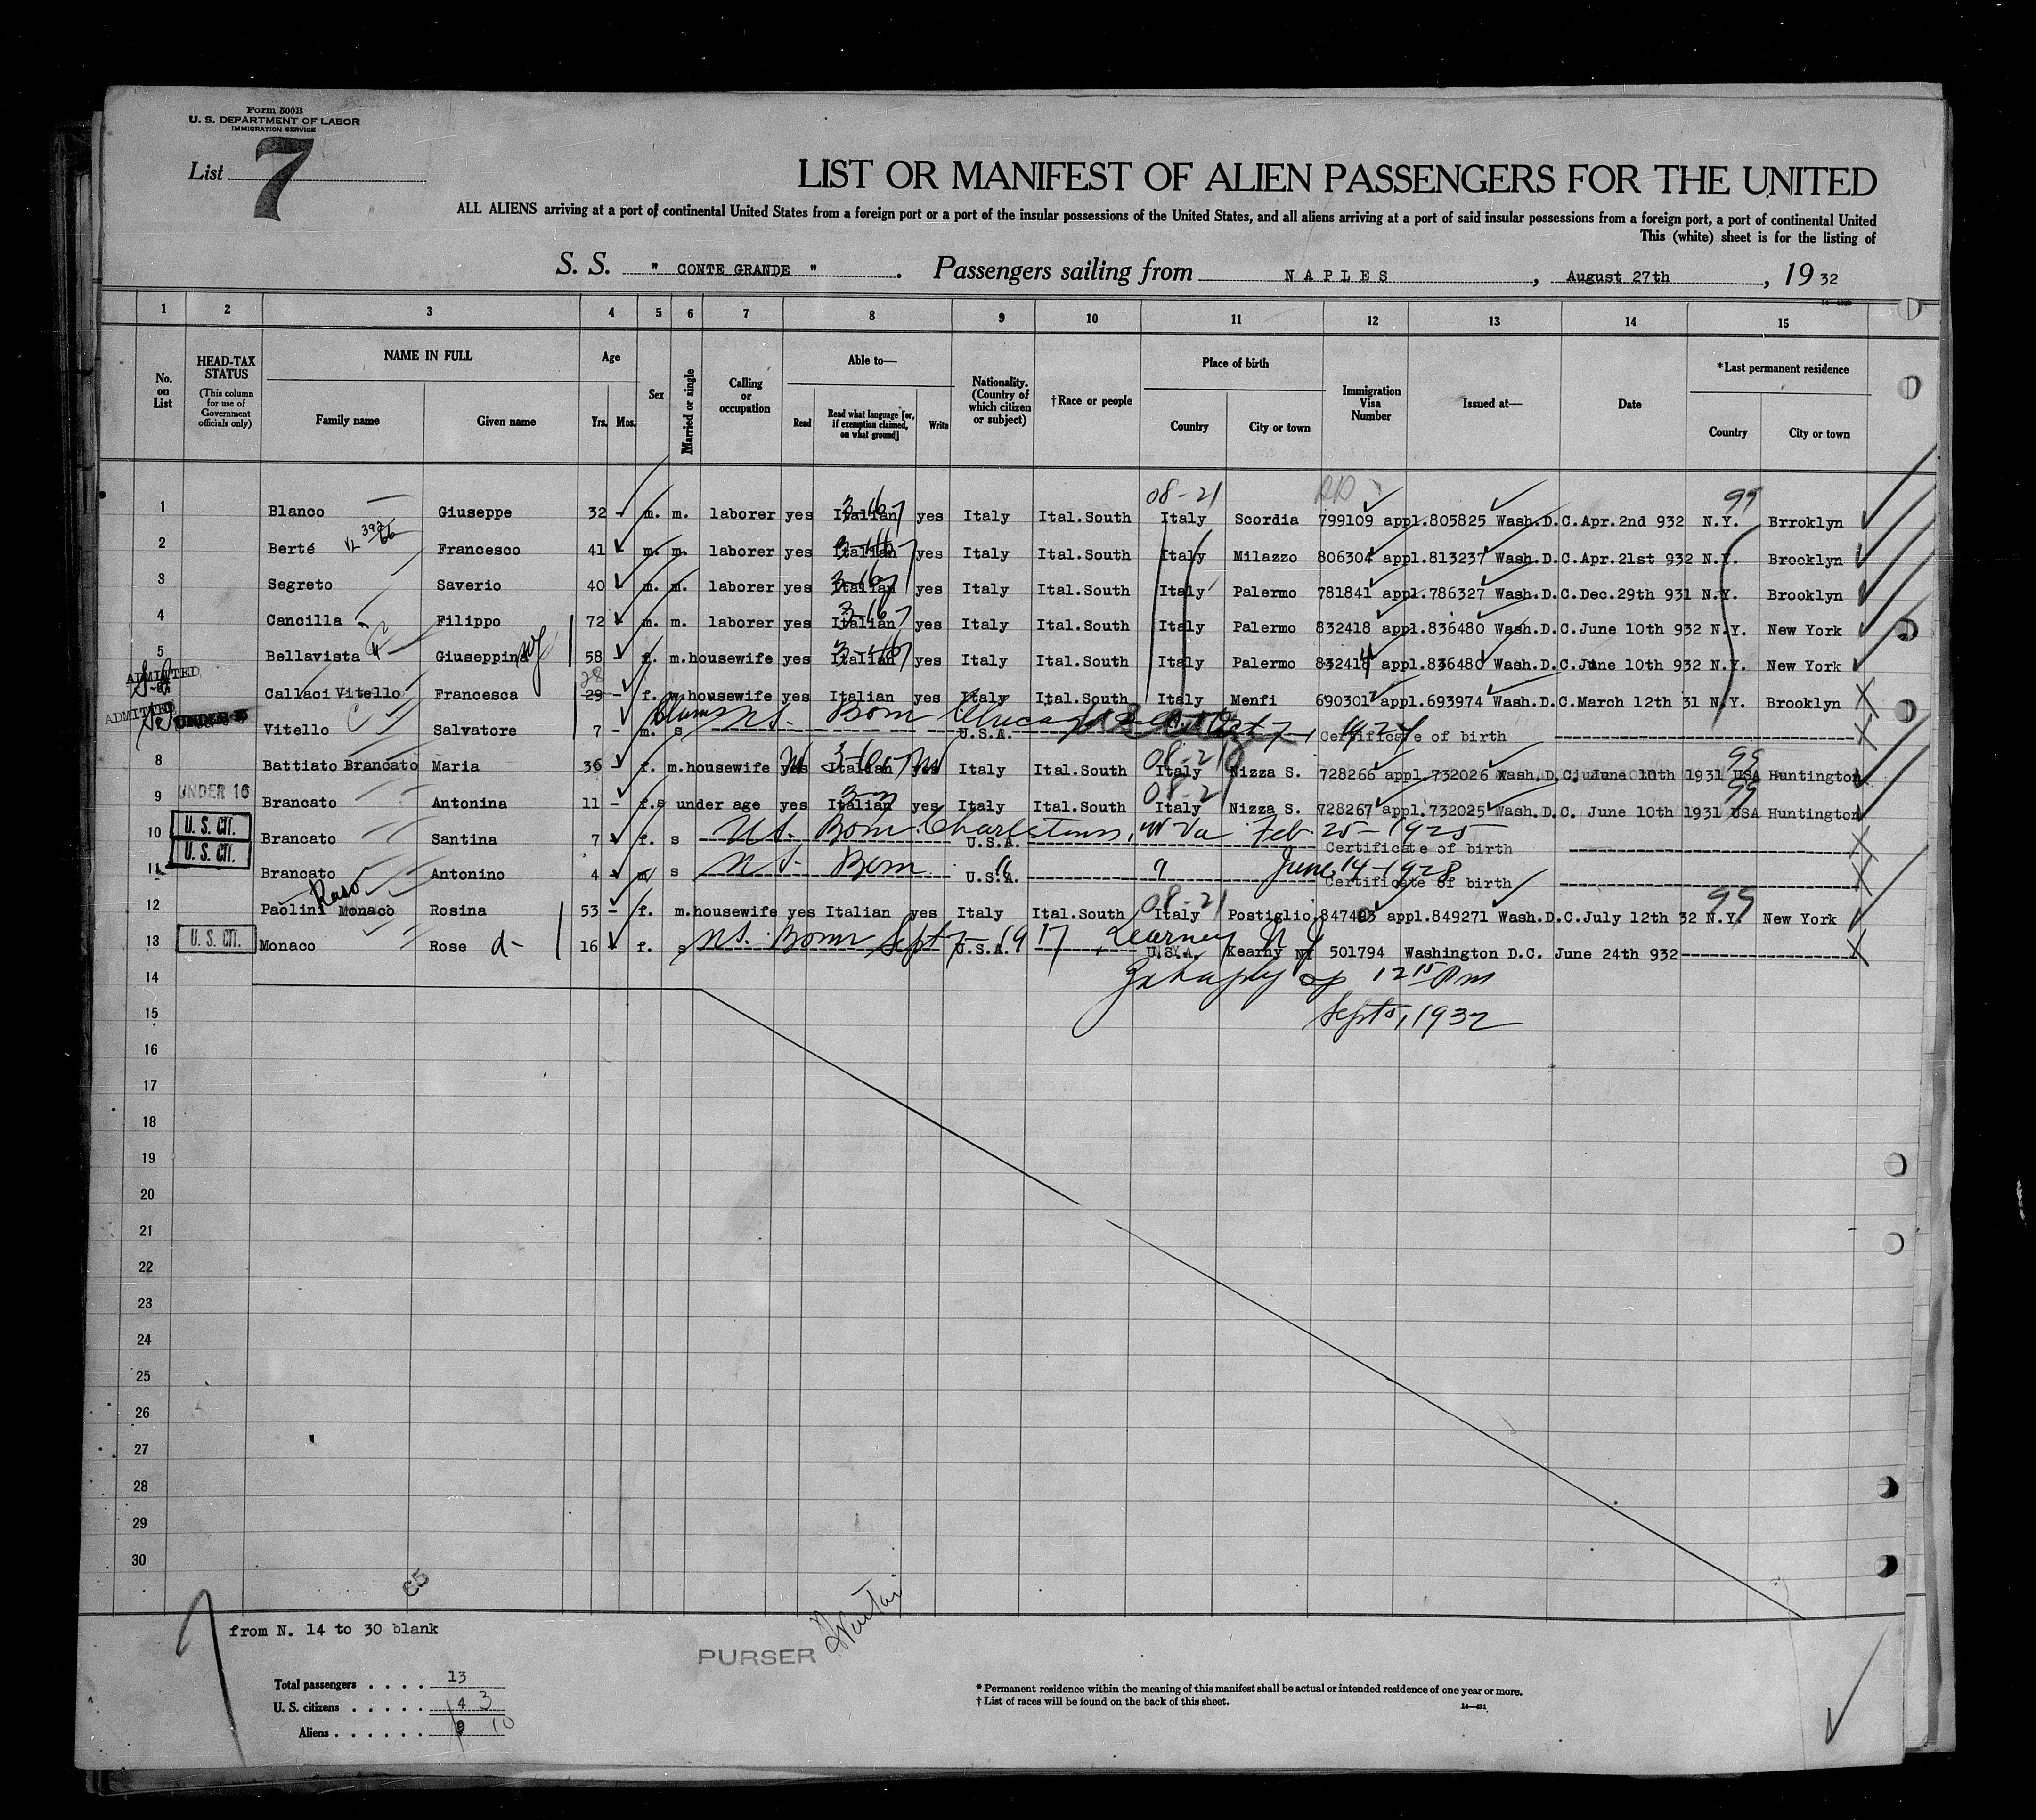 Form 500B
U. S. DEPARTMENT OF LABOR
IMMIGRATION SERVICE
List 7
LIST OR MANIFEST OF ALIEN PASSENGERS FOR THE UNITED
ALL ALIENS arriving at a port of continental United States from a foreign port or a port of the insular possessions of the United States, and all aliens arriving at a port of said insular possessions from a foreign port, a port of continental United
This (white) sheet is for the listing of
S. S. " CONTE GRANDE " . Passengers sailing from NAPLES , August 27th , 19 32
1 2 3 4 5 6 7 8 9 10 11 12 13 14 15
No. on List
HEAD-TAX STATUS (This column for use of Government officials only)
NAME IN FULL
Family name
Given name
Age
Yrs. Mos.
Sex
Married or single
Calling or occupation
Able to—
Read
Read what language [or, if exemption claimed, on what ground]
Write
Nationality. (Country of which citizen or subject)
†Race or people
Place of birth
Country
City or town
Immigration Visa Number
Issued at—
Date
*Last permanent residence
Country
City or town
08-21 99
1 Blanco Giuseppe 32 - m. m. laborer yes Italian yes Italy Ital.South Italy Scordia 799109 appl.805825 Wash.D.C.Apr.2nd 932 N.Y. Brroklyn
2 Berté Francesco 41 m. m. laborer yes Italian yes Italy Ital.South Italy Milazzo 806304 appl.813237 Wash.D.C.Apr.21st 932 N.Y. Brooklyn
3 Segreto Saverio 40 m. m. laborer yes Italian yes Italy Ital.South Italy Palermo 781841 appl.786327 Wash.D.C.Dec.29th 931 N.Y. Brooklyn
4 Cancilla Filippo 72 m. m. laborer yes Italian yes Italy Ital.South Italy Palermo 832418 appl.836480 Wash.D.C.June 10th 932 N.Y. New York
5 Bellavista Giuseppina wf 58 - f. m.housewife yes Italian yes Italy Ital.South Italy Palermo 832418 appl.836480 Wash.D.C.June 10th 932 N.Y. New York
ADMITTED 28
Callaci Vitello Francesca 29 - f. m.housewife yes Italian yes Italy Ital.South Italy Menfi 690301 appl.693974 Wash.D.C.March 12th 31 N.Y. Brooklyn
ADMITTED
Vitello Salvatore 7 - m. s U.S. Born Chicago Oct 7, 1924 U.S.A. Certificate of birth
8 Battiato Brancato Maria 36 f. m.housewife yes Italian yes Italy Ital.South 08-21 Italy Nizza S. 728266 appl.732026 Wash.D.C. June 10th 1931 99 USA Huntington
9 UNDER 16 Brancato Antonina 11 - f.s under age yes Italian yes Italy Ital.South 08-21 Italy Nizza S. 728267 appl.732025 Wash.D.C. June 10th 1931 99 USA Huntington
10 U. S. CIT. Brancato Santina 7 f. s U.S. Born Charleston, W Va Feb. 25-1925 U.S.A. Certificate of birth
11 U. S. CIT. Brancato Antonino 4 m s U.S. Born " " June 14-1928 U.S.A. Certificate of birth
Raso
12 Paolini Monaco Rosina 53 - f. m.housewife yes Italian yes Italy Ital.South 08-21 Italy Postiglio 847403 appl.849271 Wash.D.C.July 12th 32 99 N.Y. New York
13 U. S. CIT. Monaco Rose d- 16 f. s U.S. Born Sept 7-1917 Kearney N J U.S.A. U.S.A. Kearny NY 501794 Washington D.C. June 24th 932
14 12 15 Pm
15 Sept 5, 1932
16
17
18
19
20
21
22
23
24
25
26
27
28
29
30
from N. 14 to 30 blank
PURSER
Total passengers . . . . 13
U. S. citizens . . . . . 4 3
Aliens . . . . . . 9 10
* Permanent residence within the meaning of this manifest shall be actual or intended residence of one year or more.
† List of races will be found on the back of this sheet.